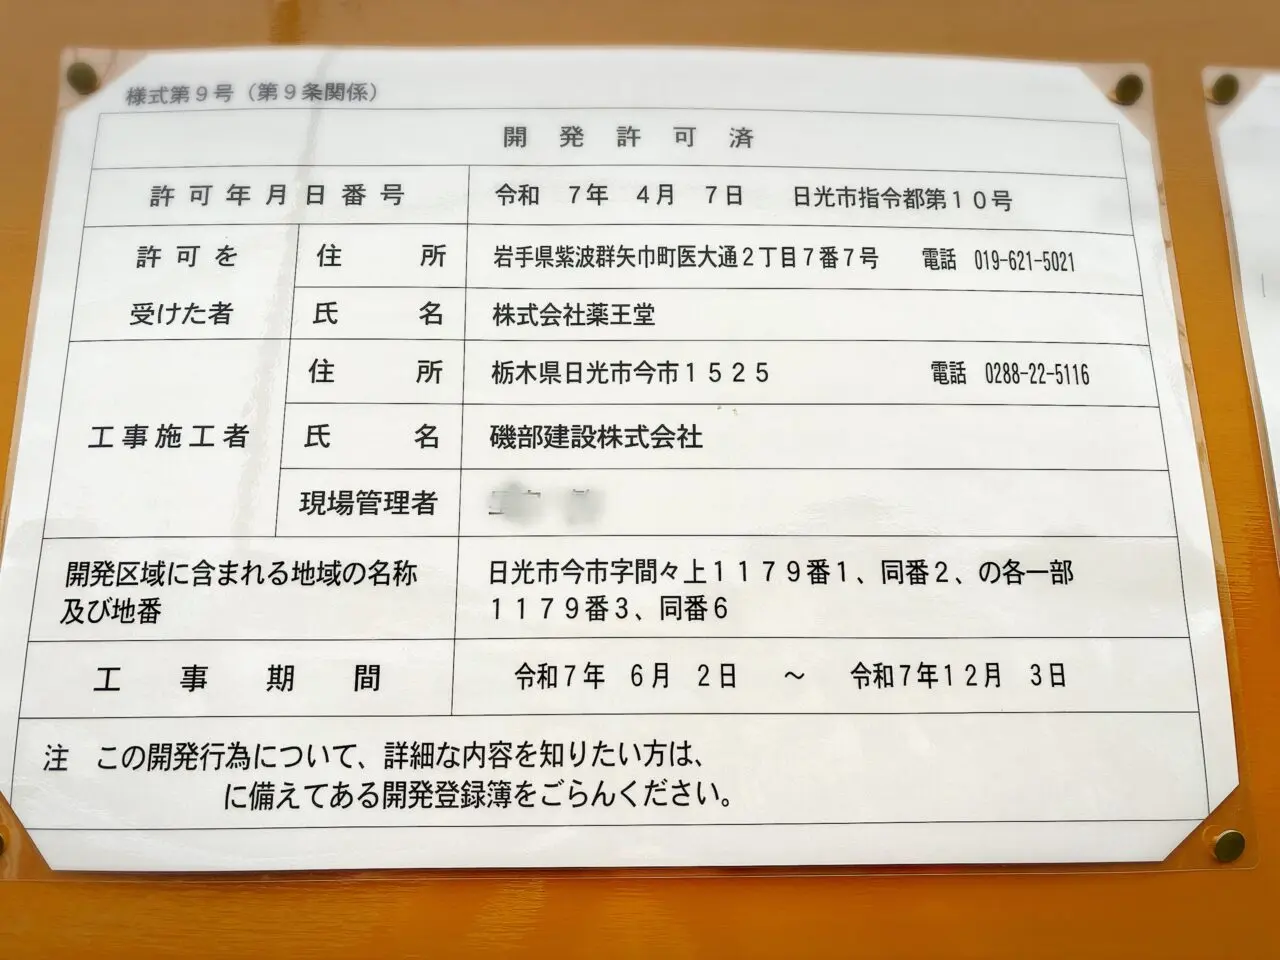 様式第９号（第９条関係）
開発許可済
許可年月日番号 令和 7年 4月 7日 日光市指令都第１０号
許可を受けた者 住所 岩手県紫波群矢巾町医大通２丁目７番７号 電話 019-621-5021
氏名 株式会社薬王堂
工事施工者 住所 栃木県日光市今市１５２５ 電話 0288-22-5116
氏名 磯部建設株式会社
現場管理者
開発区域に含まれる地域の名称
及び地番
日光市今市字間々上１１７９番１、同番２、の各一部
１１７９番３、同番６
工事期間 令和７年 ６月 ２日 ～ 令和７年１２月 ３日
注 この開発行為について、詳細な内容を知りたい方は、
に備えてある開発登録簿をごらんください。